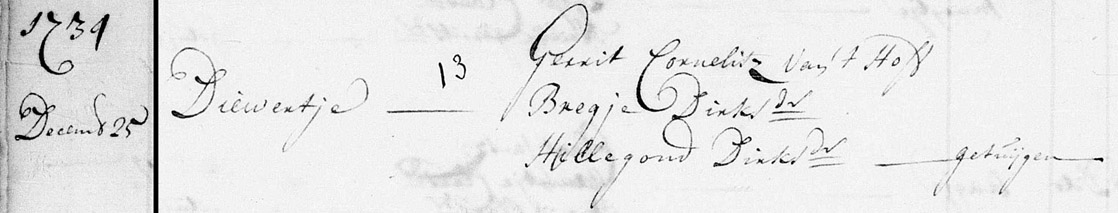 1734
Decemb 25
Diewertje — 13
Gerrit Cornelisz Van 't Hoff
Bregje Dirks dr
Hillegond Dirks dr — getuijgen